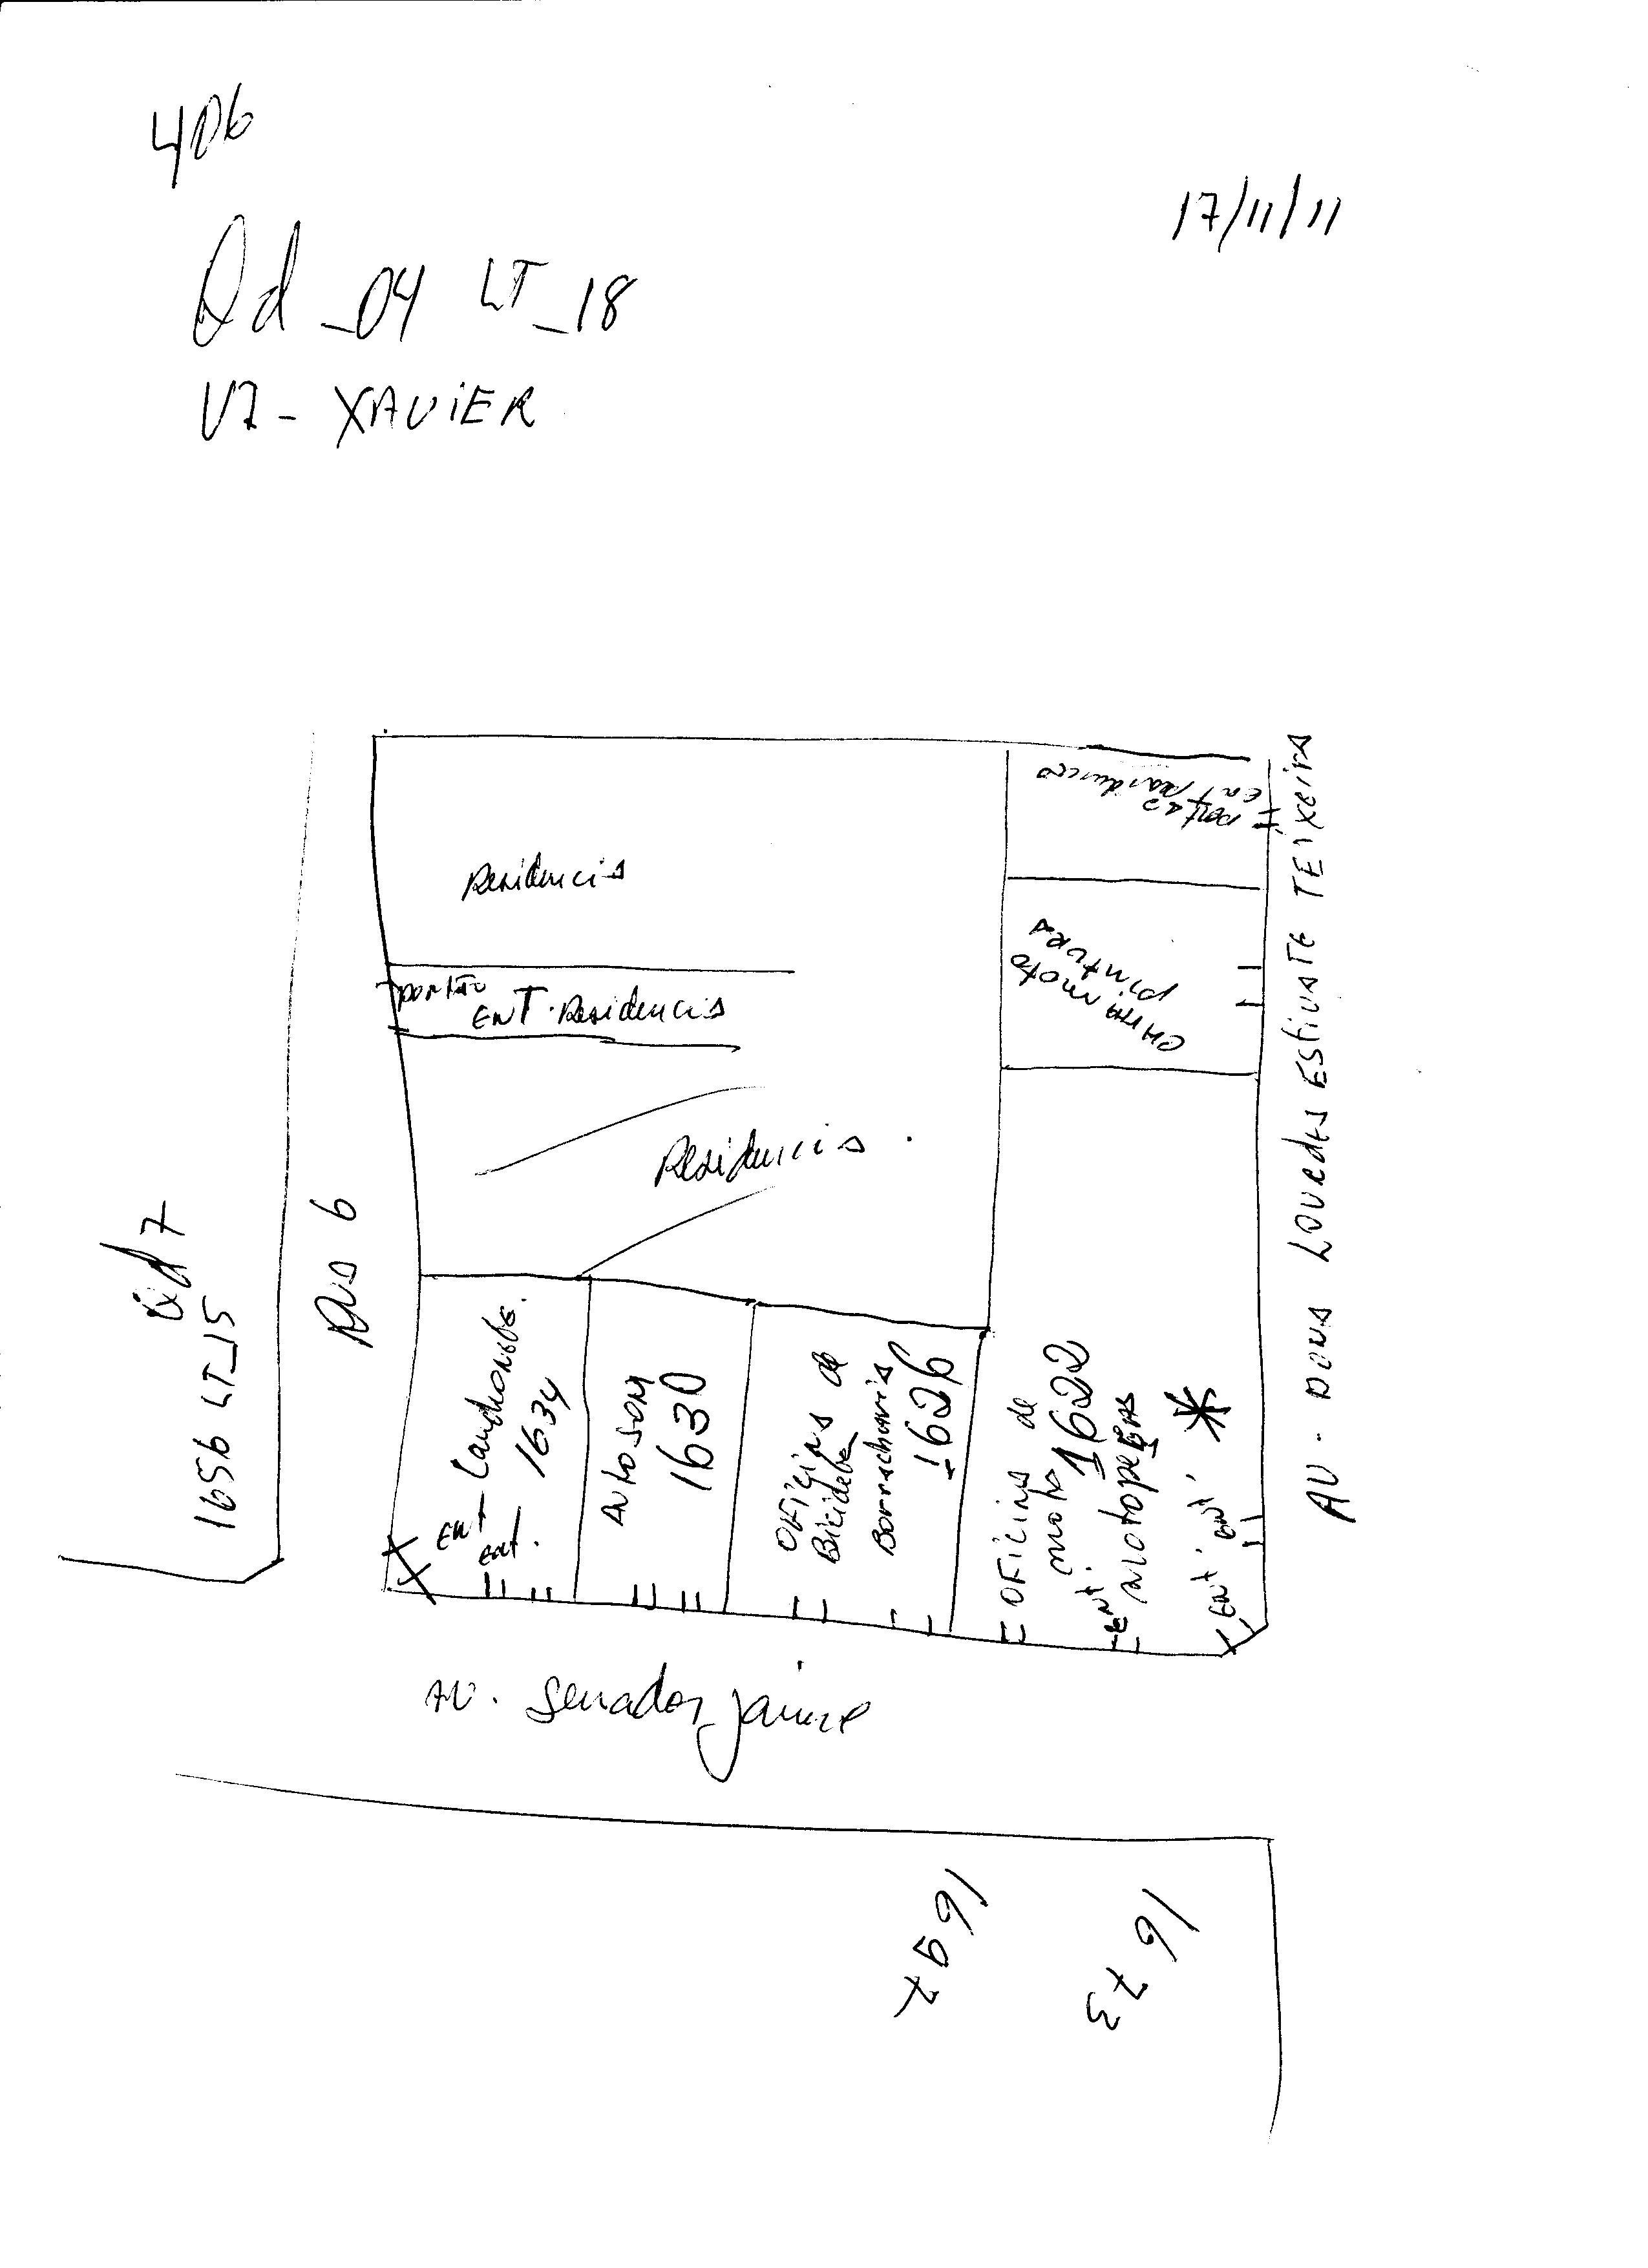 406
17/11/11
Qd_04 LT_18
V7- XAVIER
Residencia
PORTÃO
ENT. Residencia
Residencia
portão
ent residencia
CHIMA moto
pintura
AV. DONA LOURdes EStivATE TEixeira
Rua 6
Qd 7
1656 LT_15
Ent Lanchonete.
ent. 1634
AUtosom
1630
OFicina de
Bicicleta
Borracharia
1626
OFicina de
moto 1622
Ent. motopeças
Ent. ent.
AV. Senador jaime
1697
1673